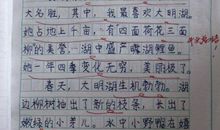 大名胜，其中，我最喜欢大明湖。
她占地上千亩，有四面荷花三面
柳的美誉。湖中盛产嘴湖鲤鱼。
她一年四季变化无穷，美丽极了。
春天，大明湖生机勃勃。湖
边柳树抽出了新的枝条，长出了
嫩绿的小芽儿。水中小野鸭在嬉